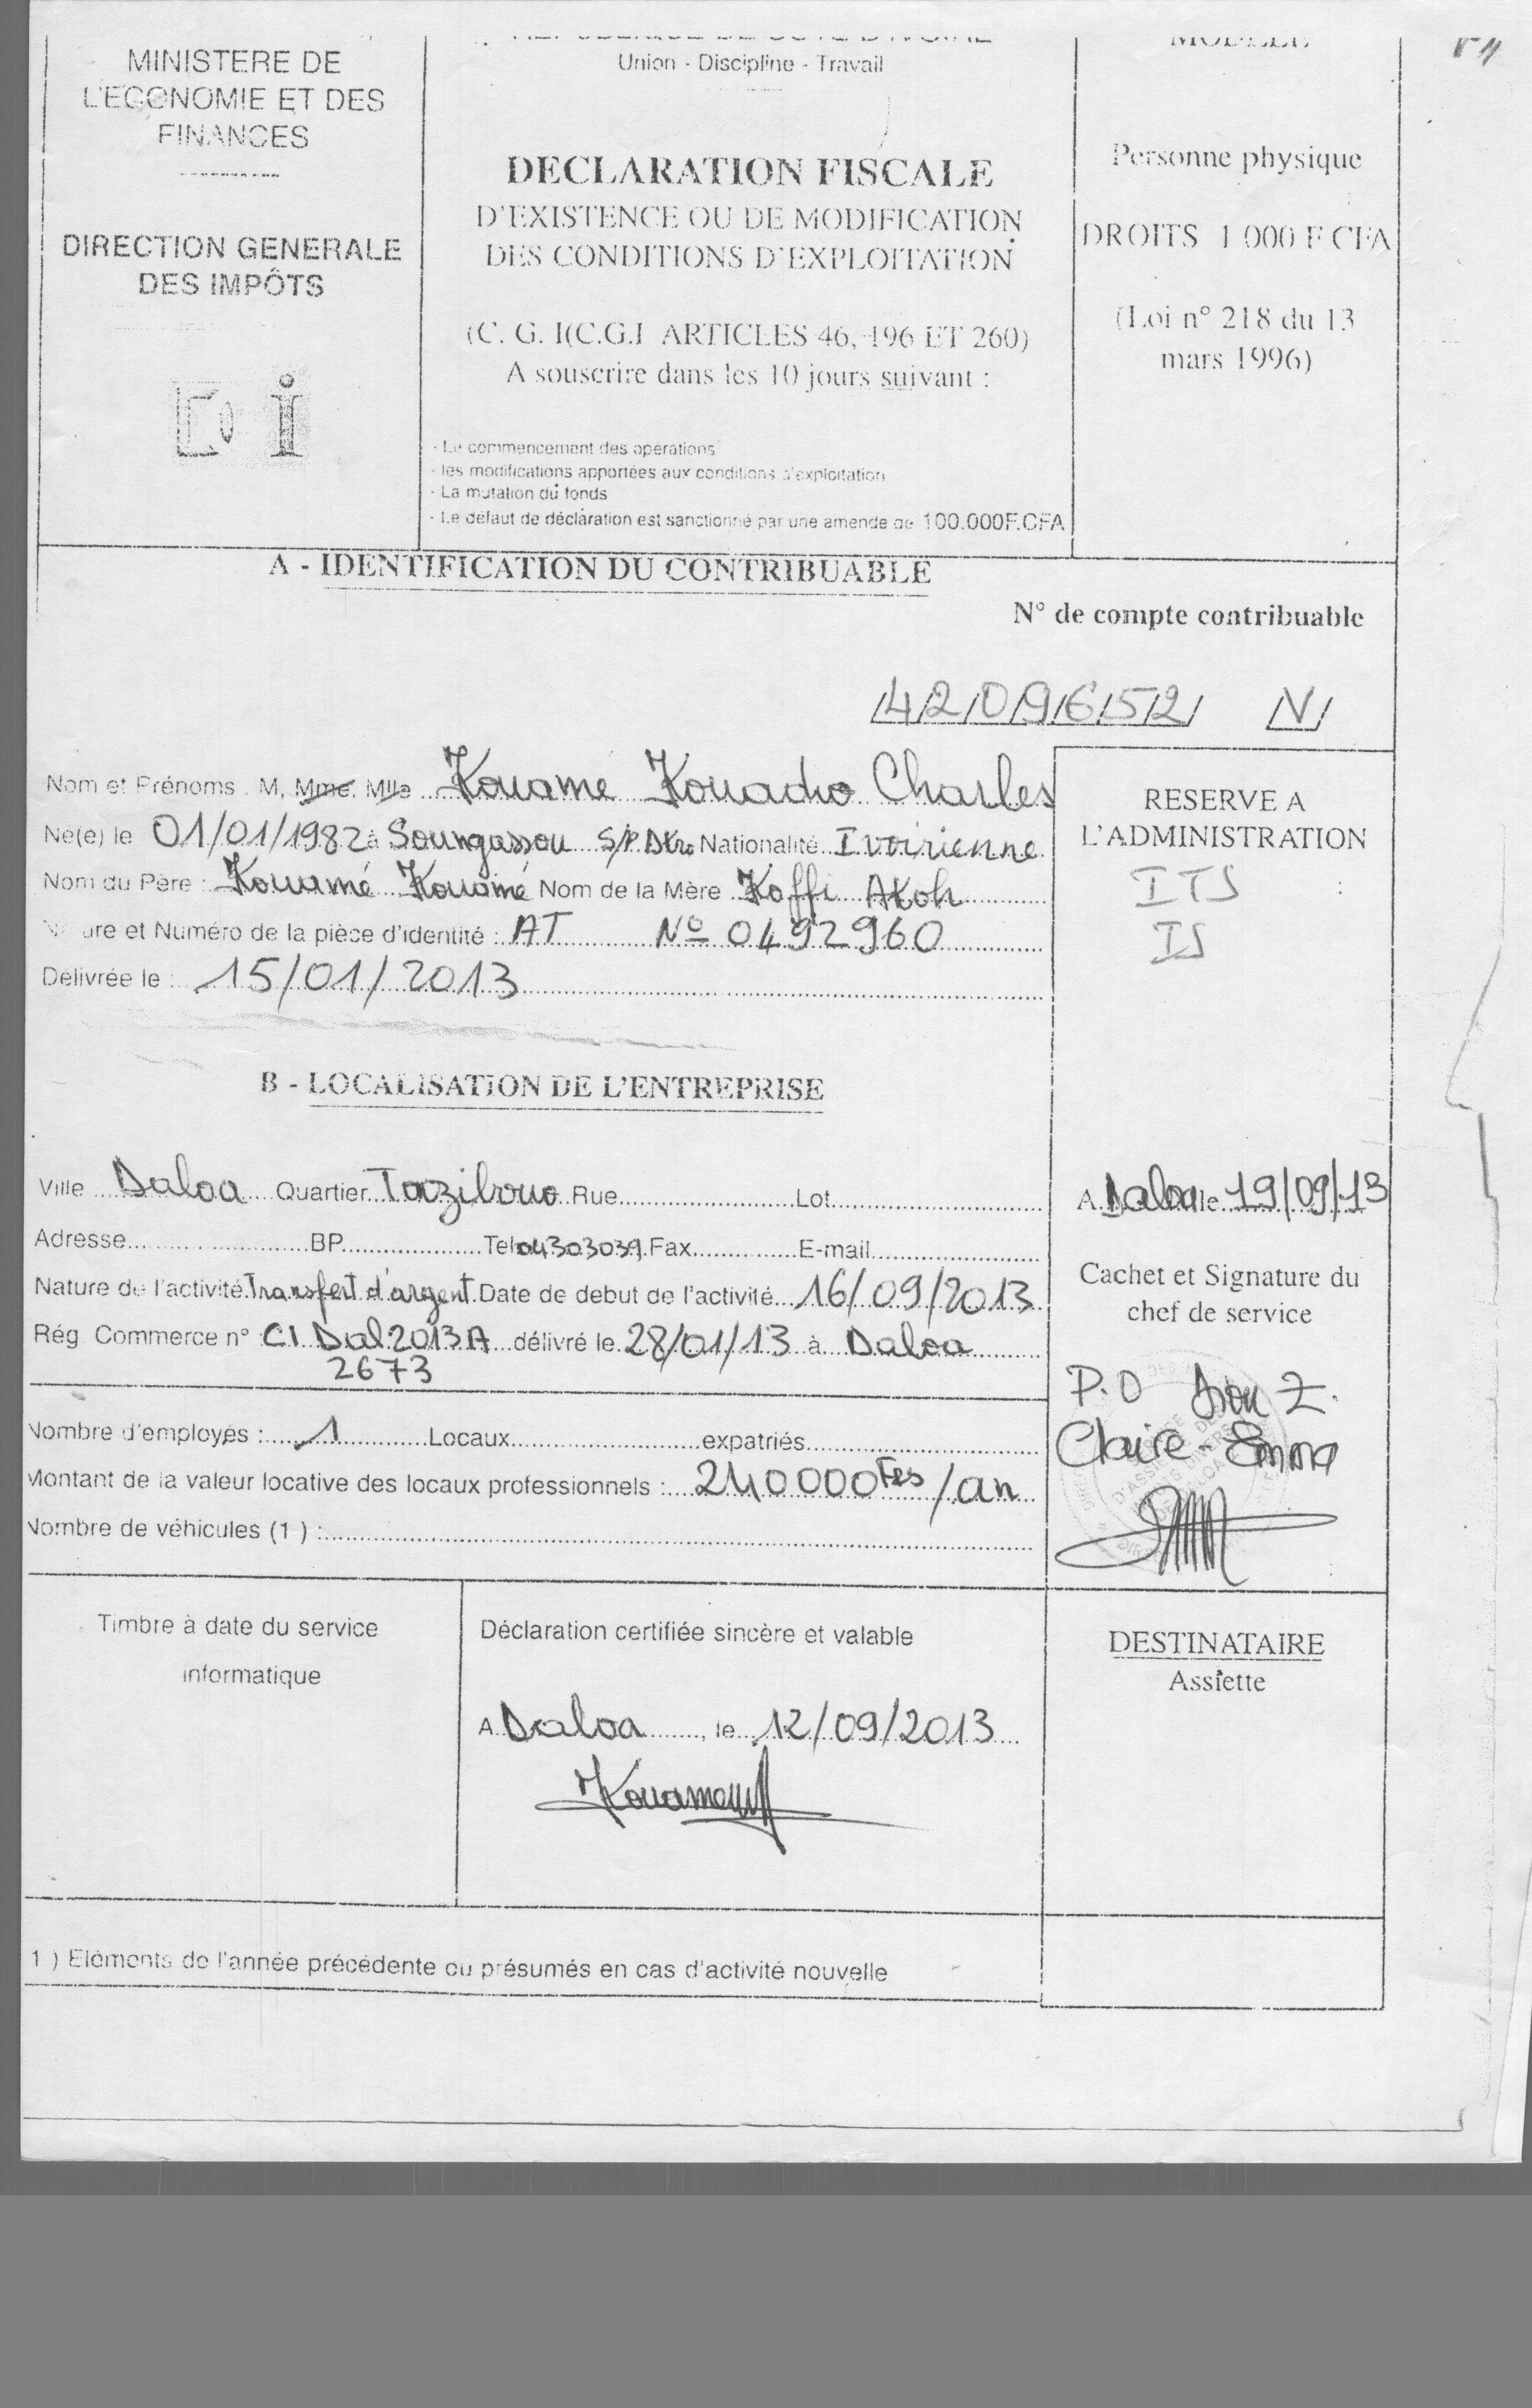 MINISTERE DE
L'ECONOMIE ET DES
FINANCES
DIRECTION GENERALE
DES IMPÔTS
Union - Discipline - Travail
DECLARATION FISCALE
D'EXISTENCE OU DE MODIFICATION
DES CONDITIONS D'EXPLOITATION
(C. G. I(C.G.I ARTICLES 46, 196 ET 260)
A souscrire dans les 10 jours suivant :
- Le commencement des opérations
- les modifications apportées aux conditions d'exploitation
- La mutation du fonds
- Le défaut de déclaration est sanctionné par une amende de 100.000F.CFA
Personne physique
DROITS 1 000 F CFA
(Loi n° 218 du 13
mars 1996)
A - IDENTIFICATION DU CONTRIBUABLE
N° de compte contribuable
/4/2/0/9/6/5/2/ /N/
Nom et Prénoms . M, Mme, Mlle Kouame Kouadio Charles
Né(e) le 01/01/1982 à Soungassou S/P Dkro Nationalité Ivoirienne
Nom du Père : Kouamé Kouamé Nom de la Mère Koffi Akoh
Nature et Numéro de la pièce d'identité : AT N° 0492960
Délivrée le : 15/01/2013
RESERVE A
L'ADMINISTRATION
ITS
IS
B - LOCALISATION DE L'ENTREPRISE
Ville Daloa Quartier Tazibouo Rue Lot
Adresse BP Tel 04303039 Fax E-mail
Nature de l'activité Transfert d'argent Date de debut de l'activité 16/09/2013
Rég. Commerce n° CI Dal 2013 A délivré le 28/01/13 à Daloa
2673
A Daloa le 19/09/13
Cachet et Signature du
chef de service
P.O Z.
Claire-Emma
Nombre d'employés : 1 Locaux expatriés
Montant de la valeur locative des locaux professionnels : 240000 Frs /an
Nombre de véhicules (1 ) :
Timbre à date du service
informatique
Déclaration certifiée sincère et valable
A Daloa , le 12/09/2013
Kouame
DESTINATAIRE
Assiette
1 ) Eléments de l'année précédente ou présumés en cas d'activité nouvelle